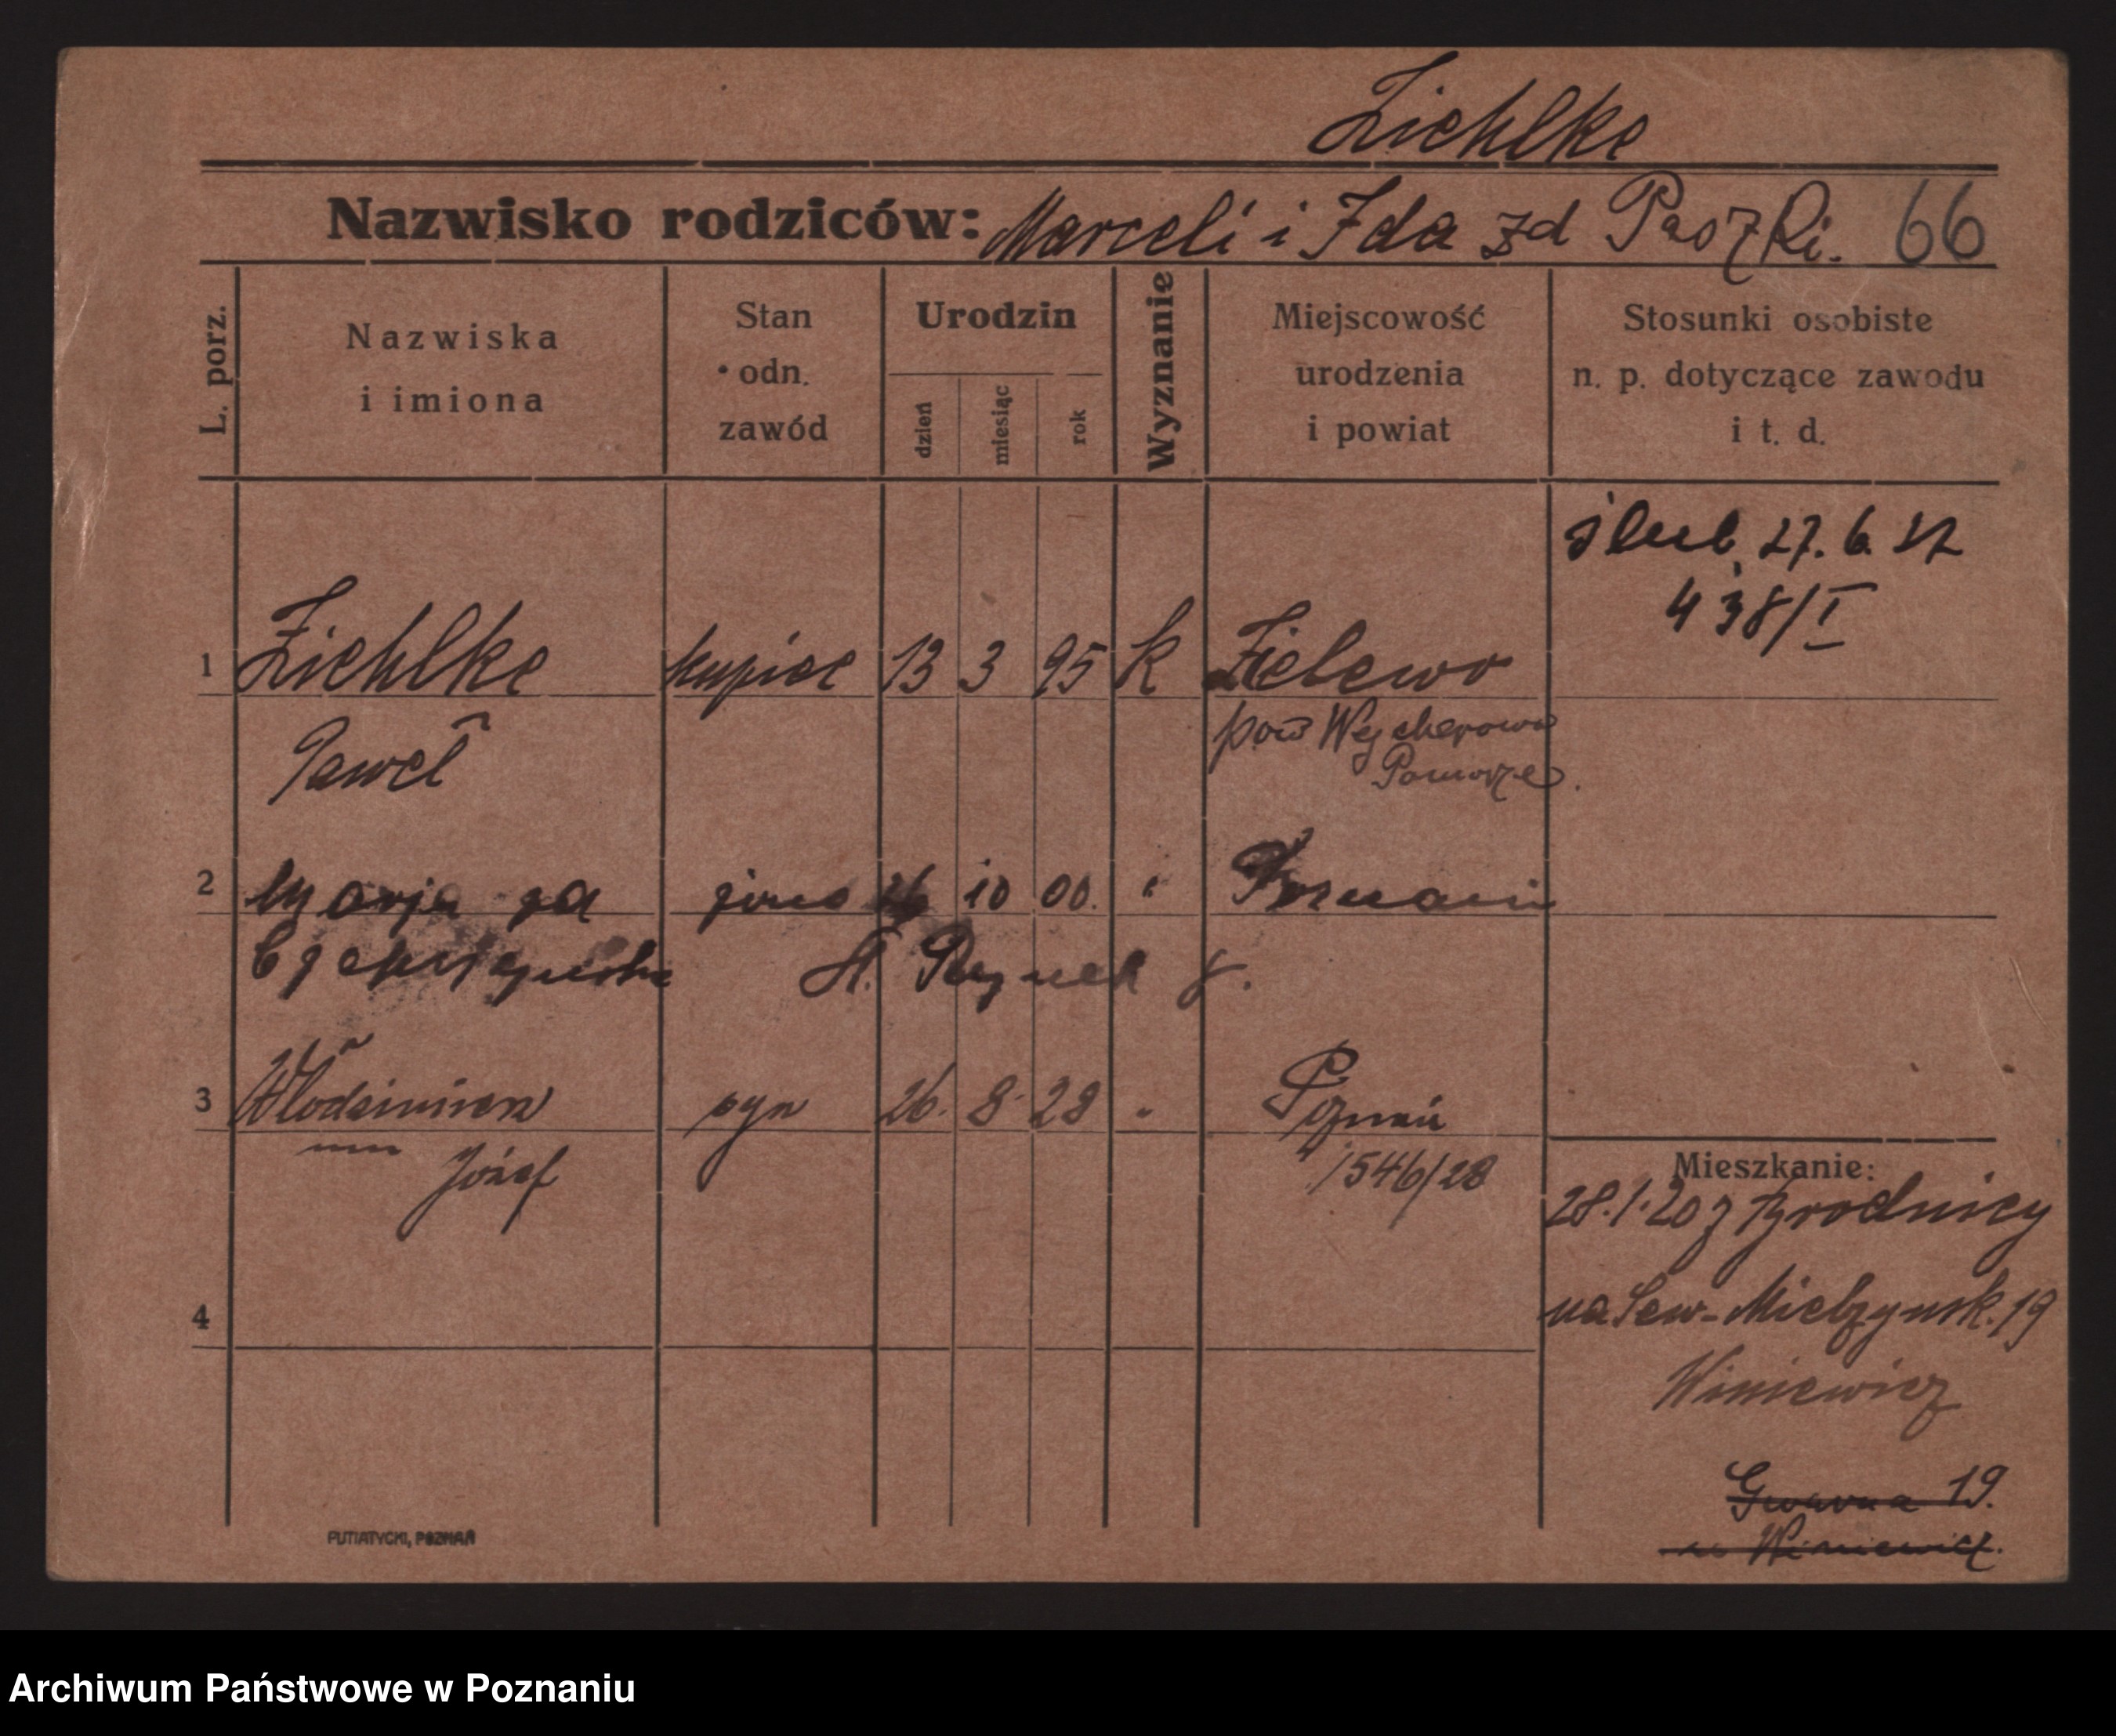 Ziehlke
Nazwisko rodziców: Marceli i Ida zd Paszki. 66
L. porz.
Nazwiska
i imiona
Stan
odn.
zawód
Urodzin
dzień
miesiąc
rok
Wyznanie
Miejscowość
urodzenia
i powiat
Stosunki osobiste
n. p. dotyczące zawodu
i t. d.
ślub 27. 6. 27
438/I
1 Ziehlke kupiec 13 3 95 k Zielewo
Paweł
pow Wejcherowo
Pomorze.
2 Marja zd żona 26 10 00. " Poznań
St. Rynek 8.
3 Włodzimierz syn 26. 8. 28 " Poznań
Józef
1546/28
4
Mieszkanie:
28.1.20 z Brodnicy
na Sew. Mielżyńsk. 19
Winiewicz
Gwarna 19.
Winiewicz.
PUTIATYCKI, POZNAŃ
Archiwum Państwowe w Poznaniu